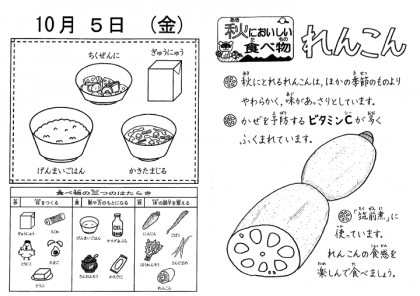 10月 5日 （金）
ちくぜんに
ぎゅうにゅう
げんまいごはん
かきたまじる
食べ物の三つのはたらき
をつくる
熱や力のもとになる
の調子を整える
ぎゅうにゅう
とりにく
たまご
とうふ
げんまいごはん
にんじん
ごぼう
ほうれんそう
秋においしい
食べ物
れんこん
秋にとれるれんこんは、ほかの季節のものより
やわらかく、味があっさりとしています。
かぜを予防するビタミンCが多く
ふくまれています。
「筑前煮」に
使っています。
れんこんの食感を
楽しんで食べましょう。